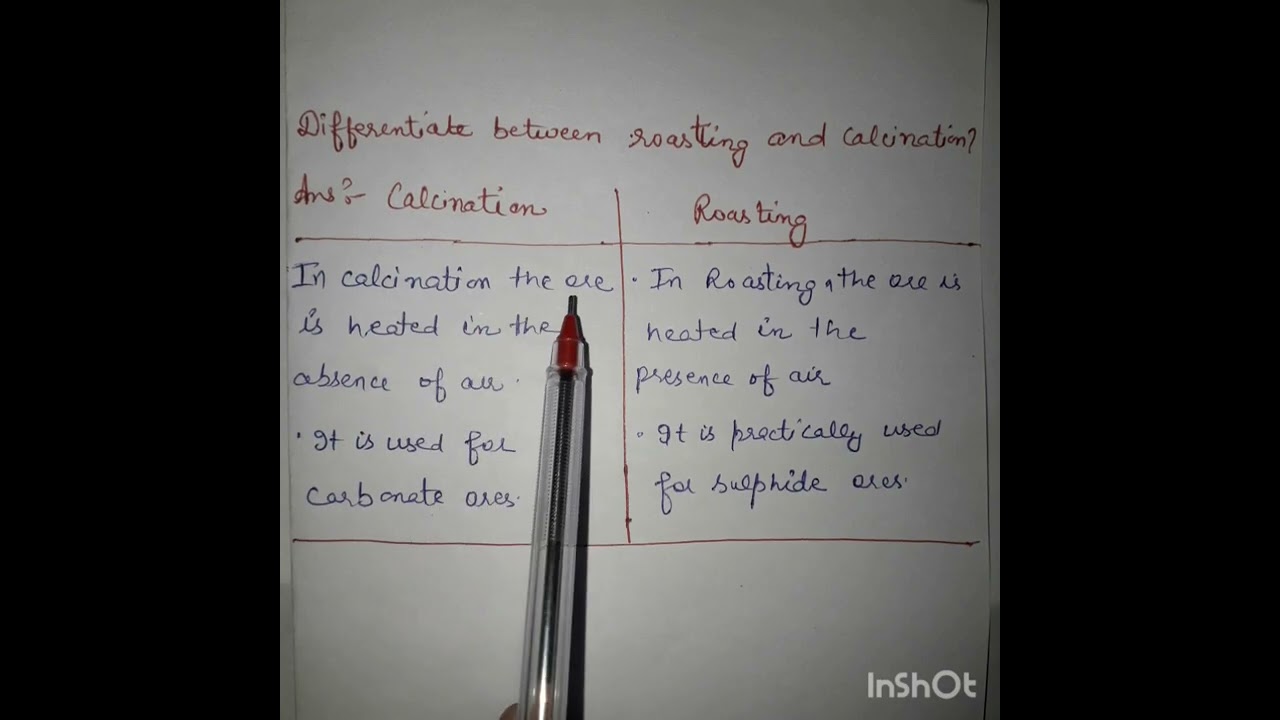 Differentiate between roasting and calcination?
Ans:- Calcination
Roasting
In calcination the ore
is heated in the
absence of air.
· It is used for
carbonate ores.
· In Roasting, the ore is
heated in the
presence of air
· It is practically used
for sulphide ores.
InShOt